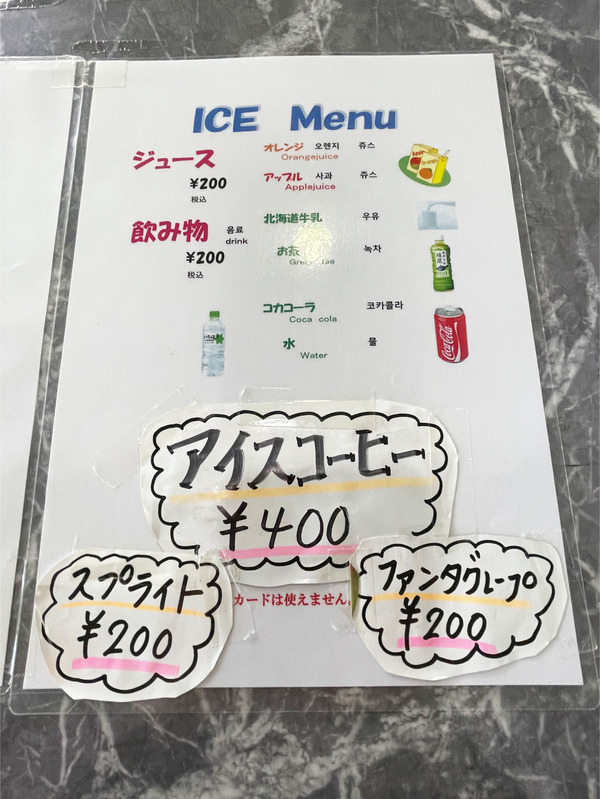 ICE Menu
ジュース
¥200
税込
オレンジ 오렌지 쥬스
Orangejuice
アップル 사과 쥬스
Applejuice
飲み物 음료
drink
¥200
税込
北海道牛乳 우유
お茶 녹차
コカコーラ 코카콜라
Coca cola
水 물
Water
Coca-Cola
アイスコーヒー
¥400
スプライト
¥200
ファンタグレープ
¥200
カードは使えません。